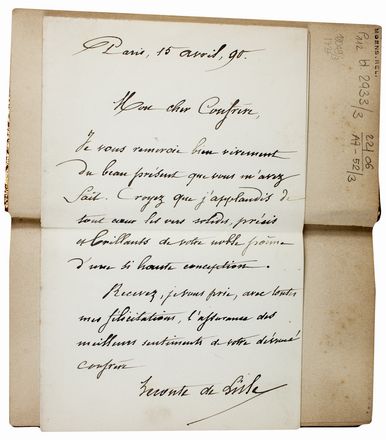 Paris, 15 avril, 90.
Mon cher Confrère,
Je vous remercie bien vivement
du beau présent que vous m'avez
fait. Croyez que j'applaudis de
tout cœur les vers solides, précis
et brillants de votre noble poème
d'une si haute conception.
Recevez, je vous prie, avec toutes
mes félicitations, l'assurance des
meilleurs sentiments de votre dévoué
confrère
Leconte de Lisle
Paz H 2933/3
22/06
A4-52/3